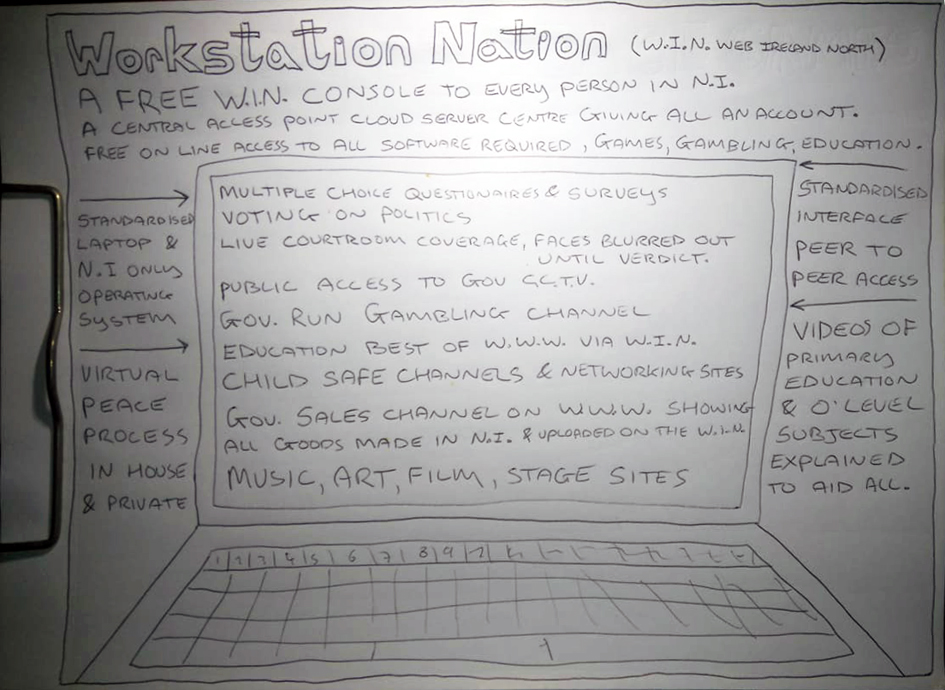 Workstation Nation (W.I.N. WEB IRELAND NORTH)
A FREE W.I.N. CONSOLE TO EVERY PERSON IN N.I.
A CENTRAL ACCESS POINT CLOUD SERVER CENTRE GIVING ALL AN ACCOUNT.
FREE ON LINE ACCESS TO ALL SOFTWARE REQUIRED, GAMES, GAMBLING, EDUCATION.
STANDARDISED
LAPTOP &
N.I ONLY
OPERATING
SYSTEM
VIRTUAL
PEACE
PROCESS
IN HOUSE
& PRIVATE
MULTIPLE CHOICE QUESTIONAIRES & SURVEYS
VOTING ON POLITICS
LIVE COURTROOM COVERAGE, FACES BLURRED OUT
UNTIL VERDICT.
PUBLIC ACCESS TO GOV C.C.T.V.
GOV. RUN GAMBLING CHANNEL
EDUCATION BEST OF W.W.W. VIA W.I.N.
CHILD SAFE CHANNELS & NETWORKING SITES
GOV. SALES CHANNEL ON W.W.W. SHOWING
ALL GOODS MADE IN N.I. & UPLOADED ON THE W.I.N.
MUSIC, ART, FILM, STAGE SITES
STANDARDISED
INTERFACE
PEER TO
PEER ACCESS
VIDEOS OF
PRIMARY
EDUCATION
& O'LEVEL
SUBJECTS
EXPLAINED
TO AID ALL.
1 2 3 4 5 6 7 8 9